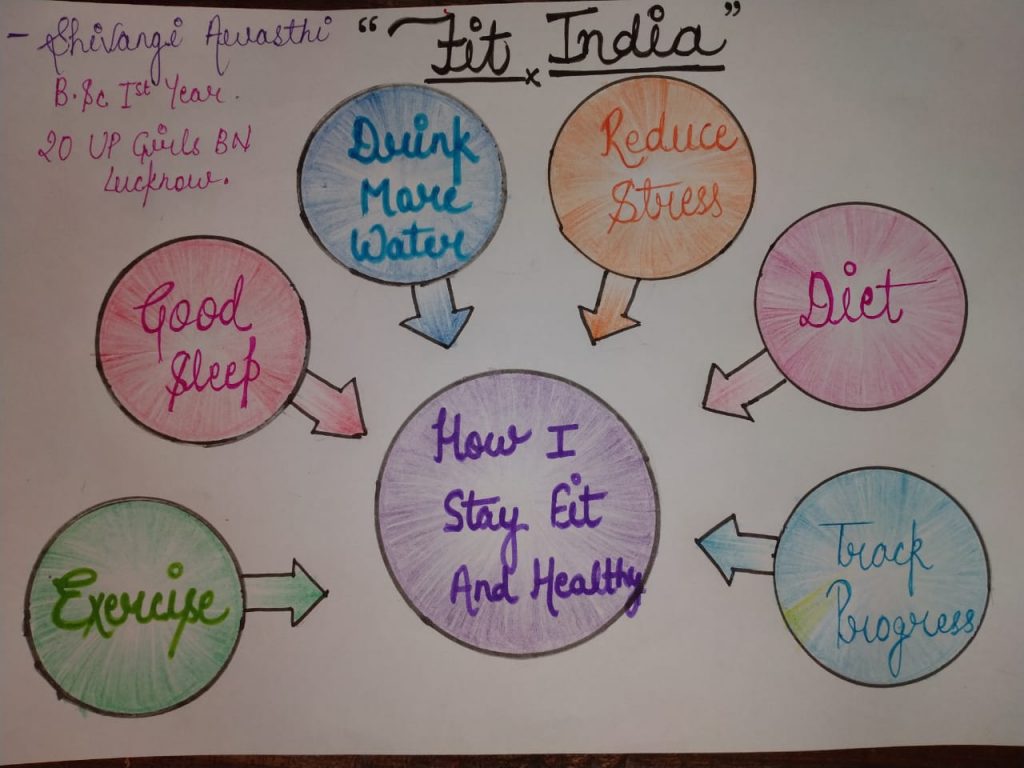 - Shivangi Awasthi
B.Sc Ist Year.
20 UP Girls BN
Lucknow.
“Fit India”
Drink
More
Water
Reduce
Stress
Good
Sleep
Diet
Exercise
How I
Stay Fit
And Healthy
Track
Progress